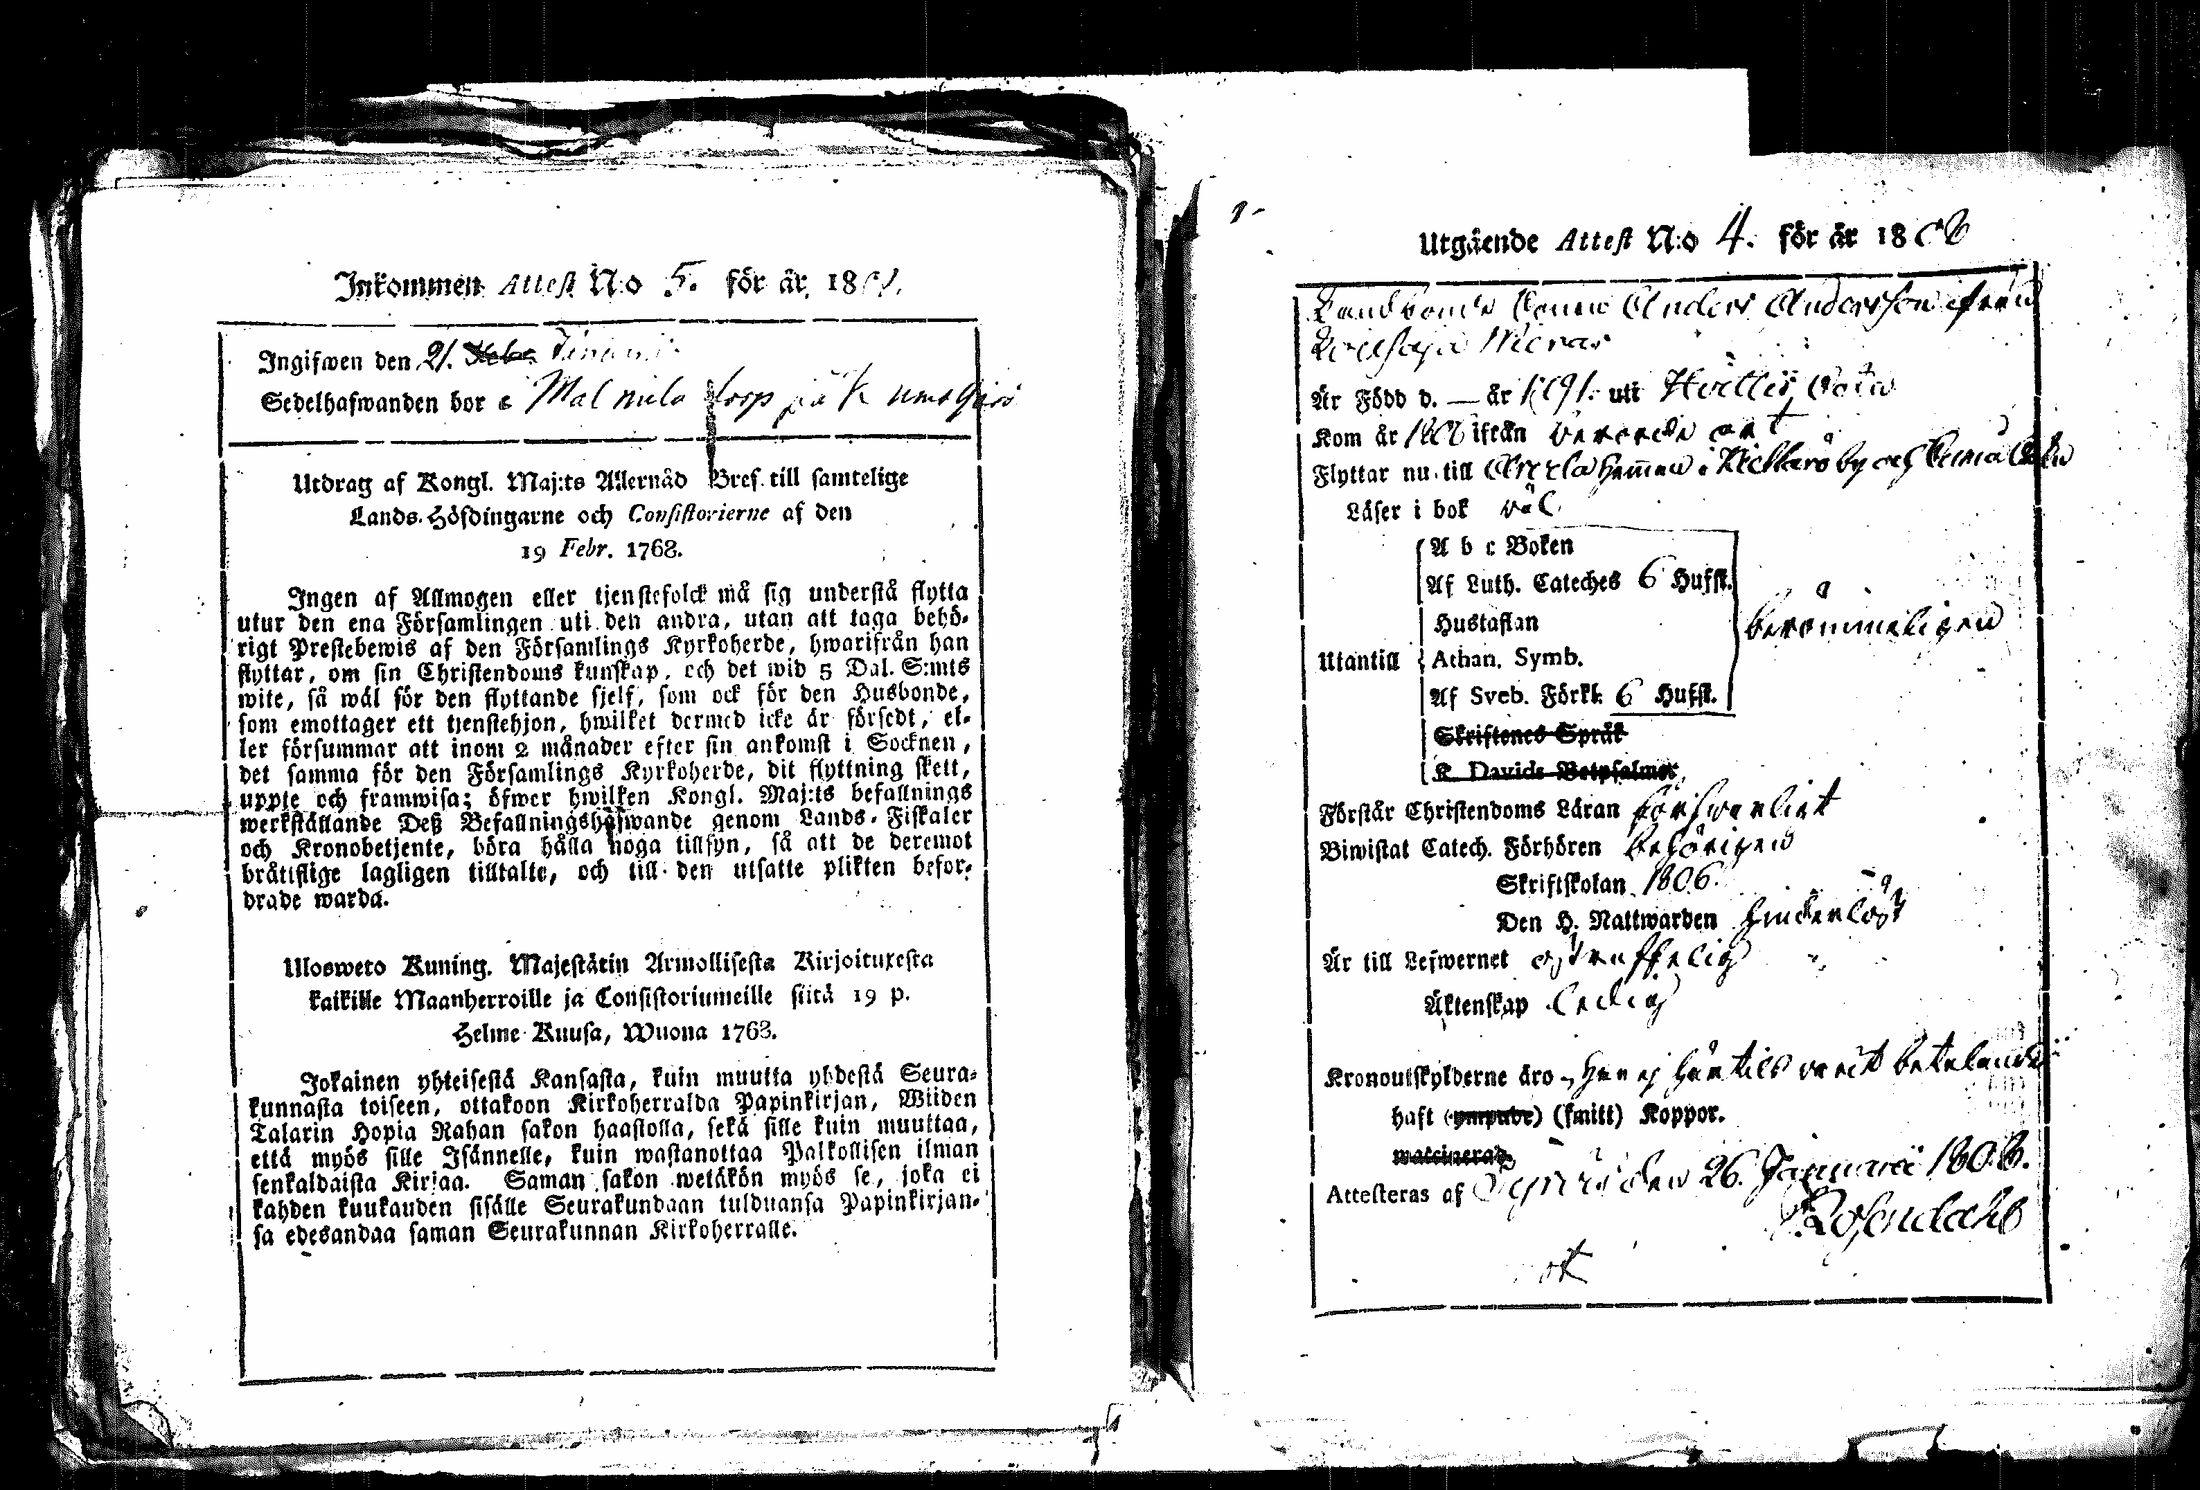 Inkommen Attest N:o 5. för år 18
Ingifwen den 21.
Sedelhafwanden bor i Malmila torp på
Utdrag af Kongl. Maj:ts Allernåd Bref till samtelige
Lands-Höfdingarne och Consistorierne af den
19 Febr. 1768.
Ingen af Allmogen eller tjenstefolck må sig understå flytta
utur den ena Församlingen uti den andra, utan att taga behö-
rigt Prestebewis af den Församlings Kyrkoherde, hwarifrån han
flyttar, om sin Christendoms kunskap, och det wid 5 Dal. S:mts
wite, så wäl för den flyttande sjelf, som ock för den Husbonde,
som emottager ett tjenstehjon, hwilket dermed icke är försedt, el-
ler försummar att inom 2 månader efter sin ankomst i Socknen,
det samma för den Församlings Kyrkoherde, dit flyttning skett,
uppte och framwisa; öfwer hwilken Kongl. Maj:ts befallnings
werkställande Deß Befallningshafwande genom Lands-Fiskaler
och Kronobetjente, böra hålla noga tillsyn, så att de deremot
bråtislige lagligen tilltalte, och till den utsatte plikten befor-
drade warda.
Ulosweto Kuning. Majestätin Armollisesta Kirjoituxesta
kaikille Maanherroille ja Consistoriumeille siitä 19 p.
Helme-Kuusa, Wuona 1768.
Jokainen yhteisestä Kansasta, kuin muutta yhdestä Seura-
kunnasta toiseen, ottakoon Kirkoherralda Papinkirjan, Wiiden
Talarin Hopia Rahan sakon haastolla, sekä sille kuin muuttaa,
että myös sille Isännelle, kuin wastanottaa Palkollisen ilman
senkaldaista Kirjaa. Saman sakon wetäkön myös se, joka ei
kahden kuukauden sisälle Seurakundaan tulduansa Papinkirjan-
sa edesandaa saman Seurakunnan Kirkoherralle.
Utgående Attest N:o 4. för år 1808
Landbonde Sonen Anders Andersson ifrån
Är Född d. — år 1791. uti
Kom år ifrån berörde ort
Flyttar nu till hemman i by och
Läser i bok väl
Utantill
A b c Boken
Af Luth. Cateches 6 Hufst.
Hustaflan
Athan. Symb.
Af Sveb. Förkl. 6 Hufst.
berömmeligen
Skriftenes Språk
K. Davids Botpsalmer
Förstår Christendoms Läran försvarligt
Biwistat Catech. Förhören behörigen
Skriftskolan 1806.
Den H. Nattwarden hinderlöst
Är till Lefwernet ostraffelig
Äktenskap ledig
Kronoutskylderne äro han ej härtils varit betalande
haft (ympade) (smitt) Koppor.
waccinerad.
Attesteras af den 26. Januarii 1808.
Rosendahl